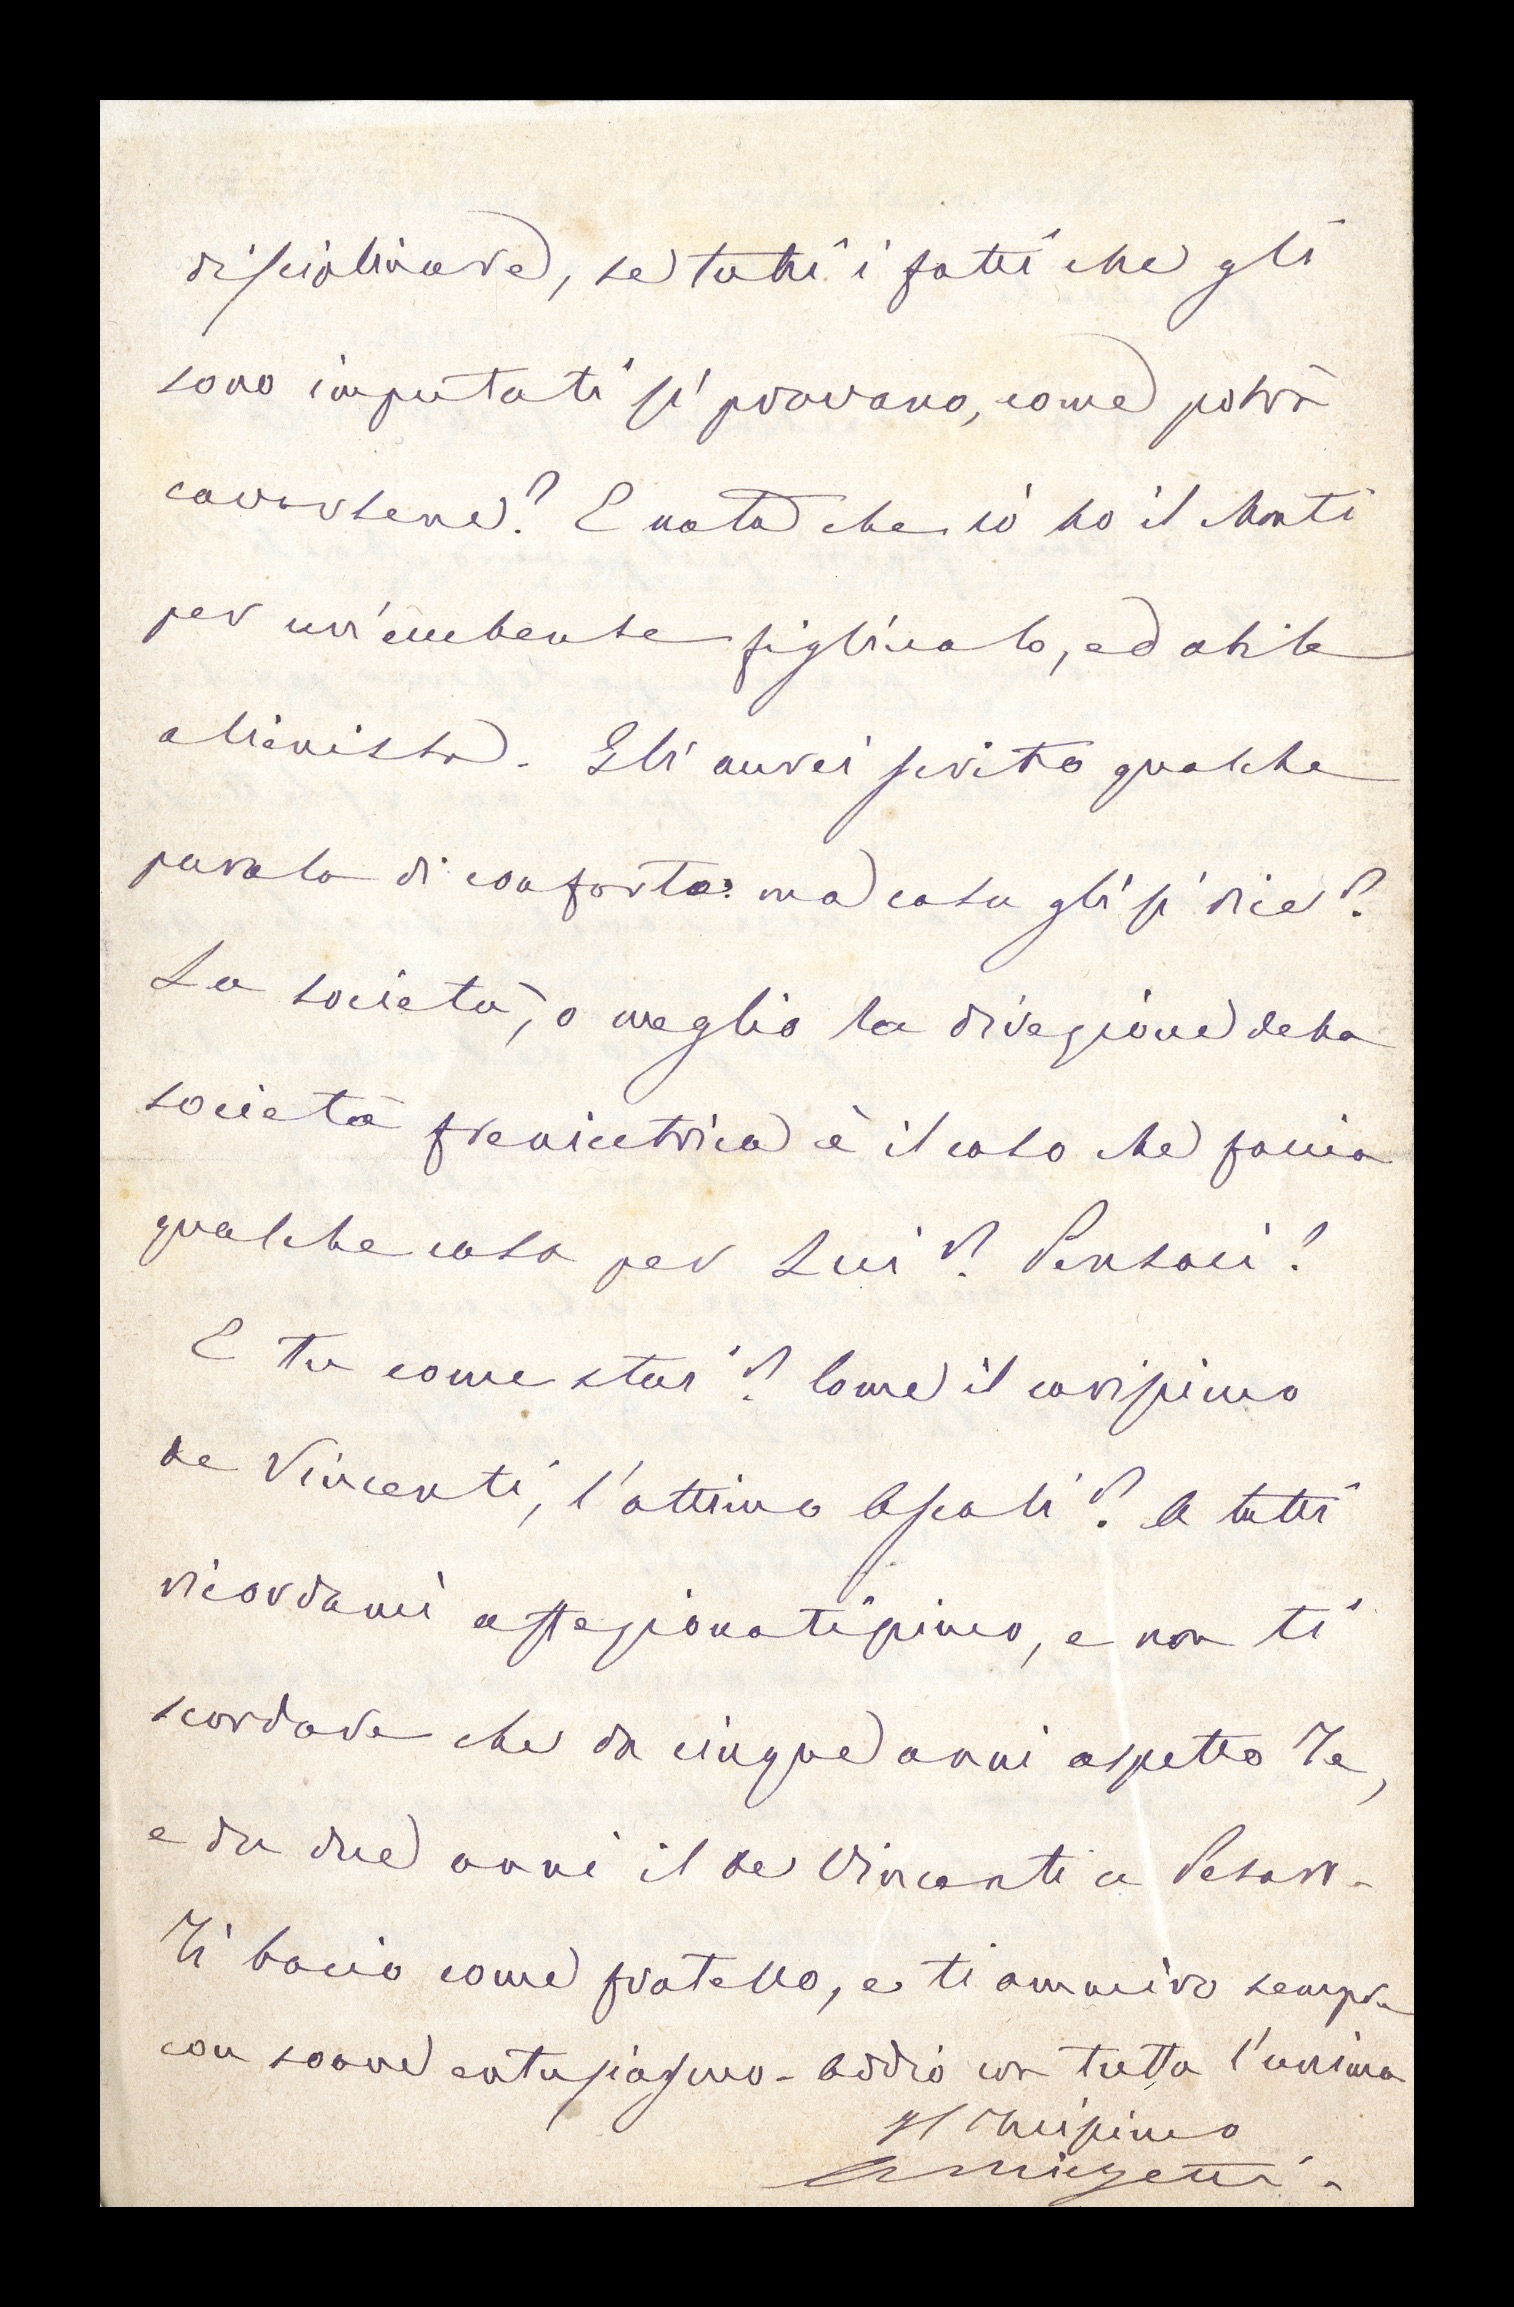 disciplinare, se tutti i fatti che gli
sono imputati si provano, come potrà
cavarsene? E nota che io ho il Monti
per un'eccellente figliuolo, ed abile
alienista. Gli avrei scritto qualche
parola di conforto: ma cosa gli si dice?
La società, o meglio la direzione della
società freniatrica è il caso che faccia
qualche cosa per Lui? Pensaci!
E tu come stai? Come il carissimo
de Vincenti, l'ottimo Ascoli? A tutti
ricordami affezionatissimo, e non ti
scordare che da cinque anni aspetto Te,
e da due anni il de Vincenti a Pesaro -
Ti bacio come fratello, e ti ammiro sempre
con soave entusiasmo - Addio con tutta l'anima
Il Tuissimo
A Michetti -